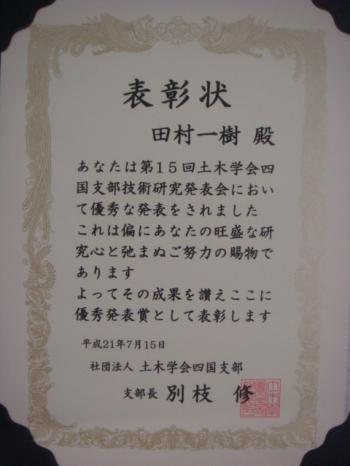 表彰状
田村一樹 殿
あなたは第15回土木学会四
国支部技術研究発表会におい
て優秀な発表をされました
これは偏にあなたの旺盛な研
究心と弛まぬご努力の賜物で
あります
よってその成果を讃えここに
優秀発表賞として表彰します
平成21年7月15日
社団法人 土木学会四国支部
支部長 別枝 修